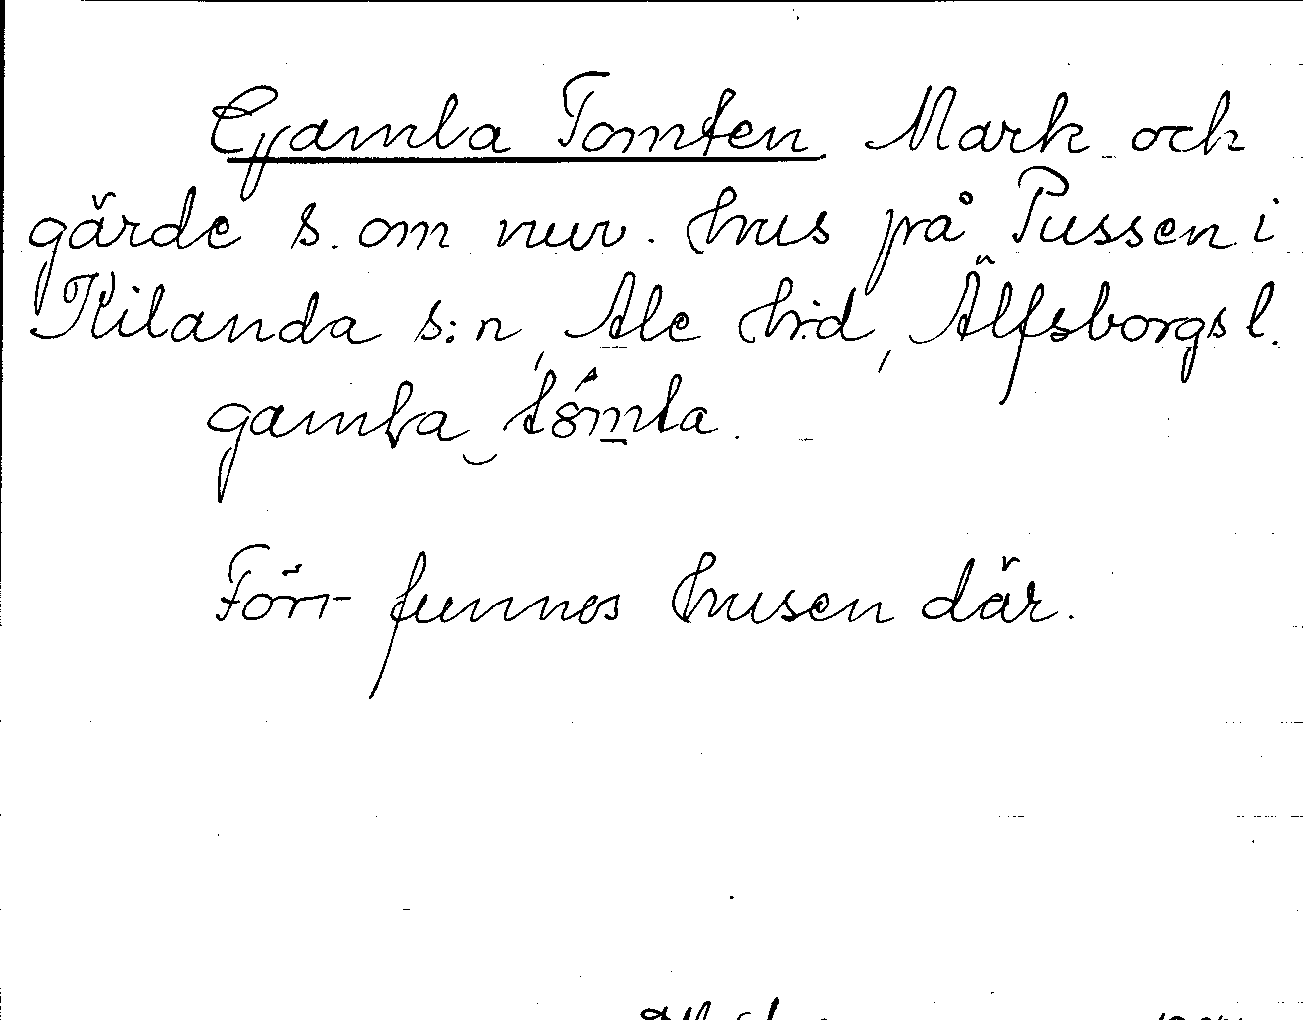 Gamla Tomten Mark och
gärde s. om nuv. hus på Pussen i
Kilanda s:n, Ale hrd, Älfsborgs l.
gamla tómta.
Förr funnos husen där.